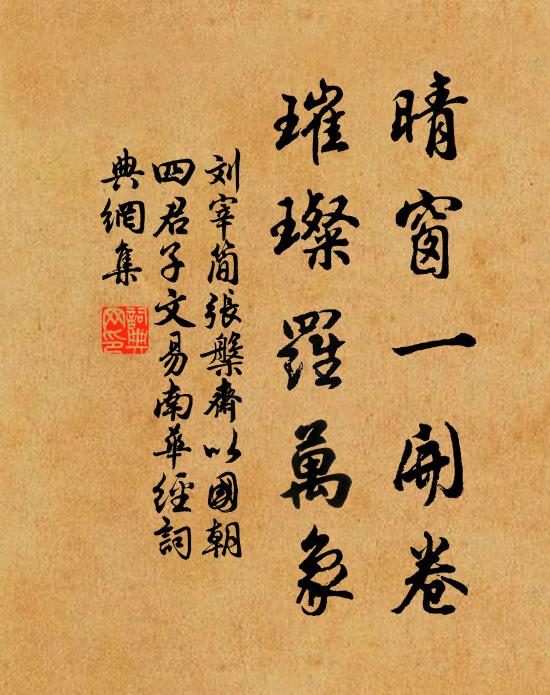 晴窗一開卷
璀璨羅萬象
刘宰簡張槃齋以國朝
四君子文易南華經詞
典網集
詞典網印